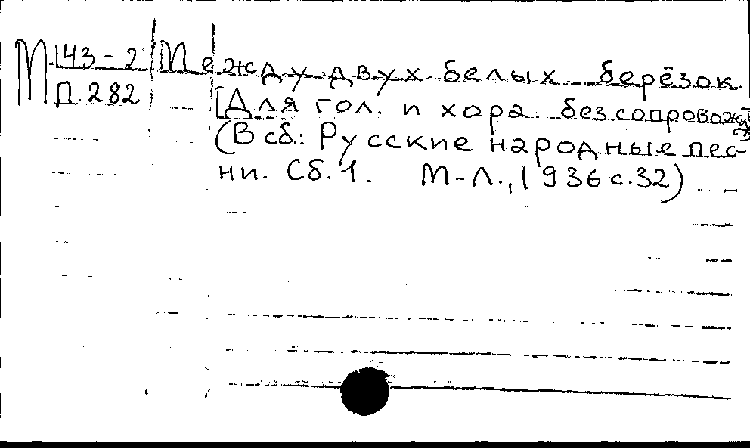 М 143-2 Между двух белых берёзок
П.282 [Для гол. и хора без сопровожд.]
(В сб.: Русские народные пес-
ни. Сб.1. М-Л., 1936 с.32)